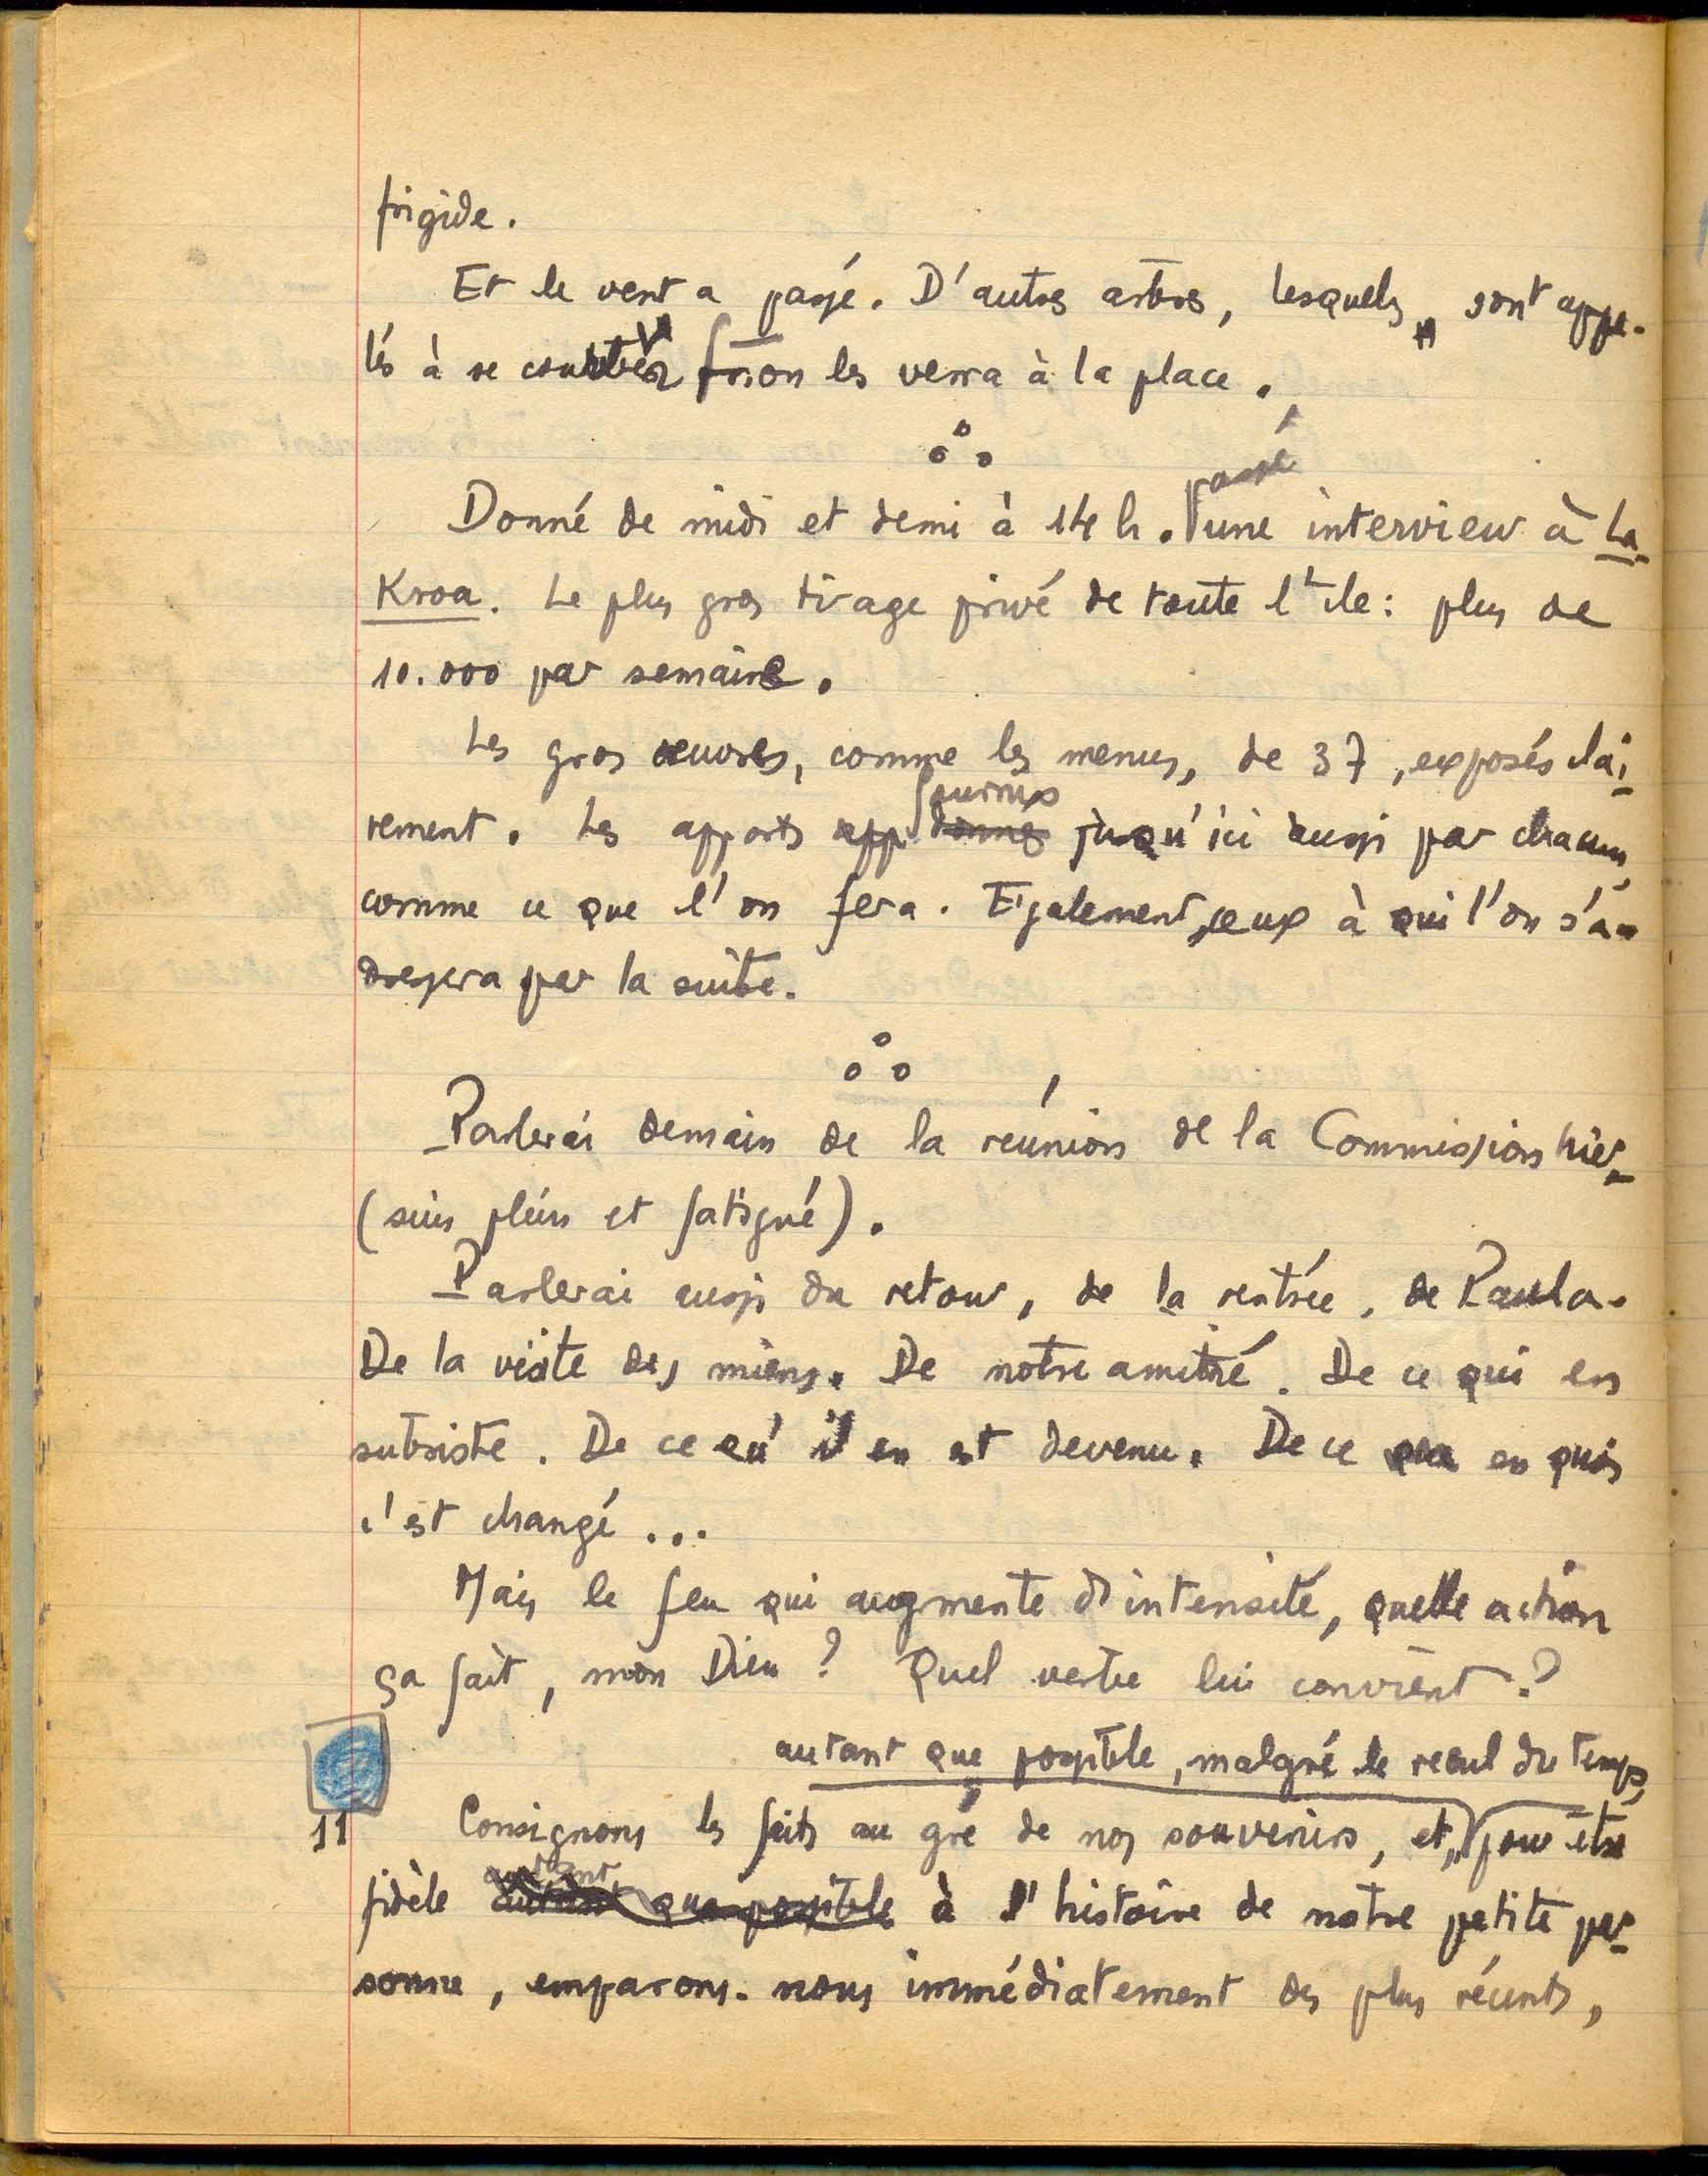 frigide.
Et le vent a passé. D'autres arbres, lesquels, sont appe-
lés à se courber on les verra à la place.
passé
Donné de midi et demi à 14 h. une interview à La-
Kroa. Le plus gros tirage privé de toute l'île: plus de
10.000 par semaine.
Les gros œuvres, comme les menus, de 37, exposés clai-
fournis
rement. Les apports app donnés jusqu'ici aussi par chacun,
comme ce que l'on fera. Egalement, ceux à qui l'on s'a-
dressera par la suite.
Parlerai demain de la réunion de la Commission hier-
(suis plein et fatigué).
Parlerai aussi du retour, de la rentrée, de Paula.
De la visite des miens. De notre amitié. De ce qui en
subsiste. De ce qu'il en est devenu. De ce en quoi
c'est changé...
Mais le feu qui augmente d'intensité, quelle action
ça fait, mon Dieu ? Quel ventre lui convient ?
autant que possible, malgré le recul du temps,
11 Consignons les faits au gré de nos souvenirs, et, pour être
autant
fidèle autant que possible à l'histoire de notre petite per-
sonne, emparons-nous immédiatement des plus récents,